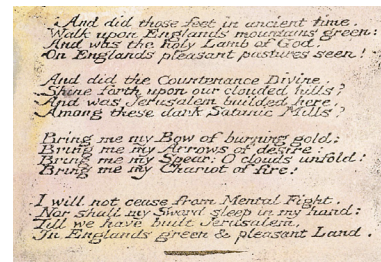 And did those feet in ancient time.
Walk upon Englands mountains green:
And was the holy Lamb of God.
On Englands pleasant pastures seen!
And did the Countenance Divine.
Shine forth upon our clouded hills?
And was Jerusalem builded here.
Among these dark Satanic Mills?
Bring me my Bow of burning gold:
Bring me my Arrows of desire:
Bring me my Spear: O clouds unfold:
Bring me my Chariot of fire!
I will not cease from Mental Fight.
Nor shall my Sword sleep in my hand:
Till we have built Jerusalem.
In Englands green & pleasant Land.